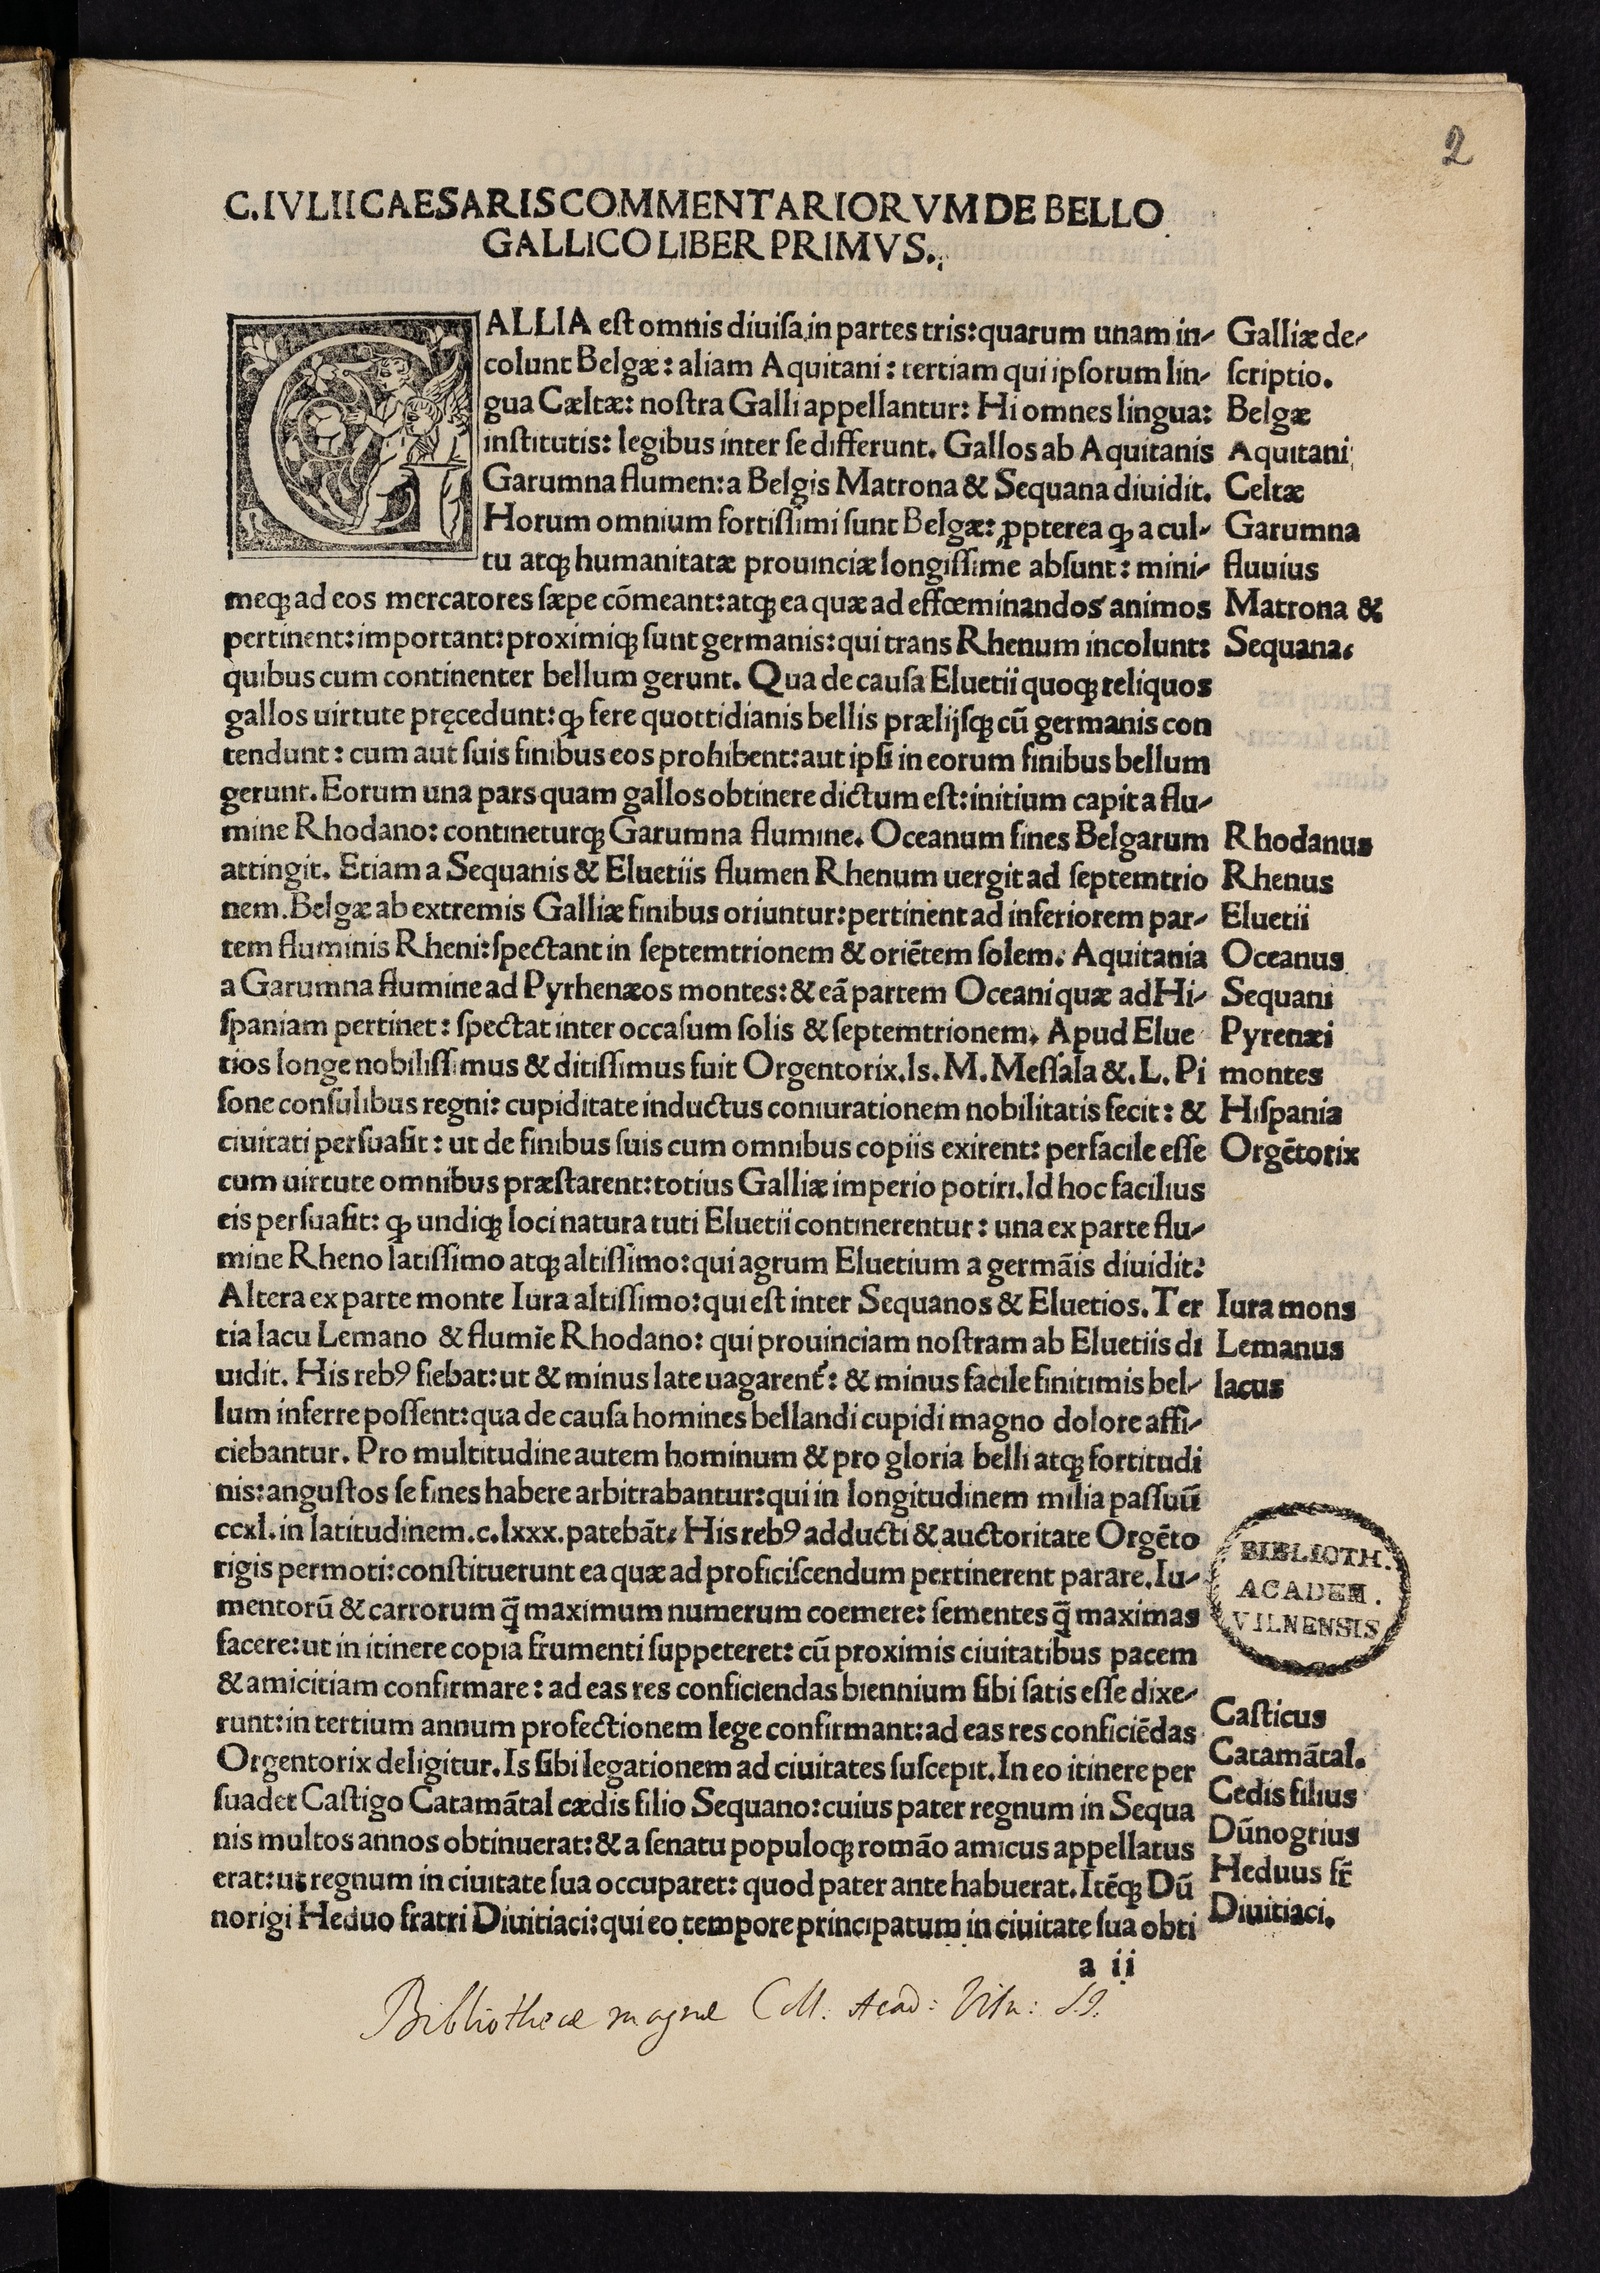 2
C.IVLII CAESARIS COMMENTARIORVM DE BELLO
GALLICO LIBER PRIMVS.
GALLIA eſt omnis diuiſa in partes tris: quarum unam in-
colunt Belgæ: aliam Aquitani: tertiam qui ipſorum lin-
gua Cæltæ: noſtra Galli appellantur: Hi omnes lingua:
inſtitutis: legibus inter ſe differunt. Gallos ab Aquitanis
Garumna flumen: a Belgis Matrona & Sequana diuidit.
Horum omnium fortiſſimi ſunt Belgæ: ꝓpterea ꝙ a cul-
tu atqꝫ humanitatæ prouinciæ longiſſime abſunt: mini-
meqꝫ ad eos mercatores ſæpe cõmeant: atqꝫ ea quæ ad effœminandos animos
pertinent: important: proximiqꝫ ſunt germanis: qui trans Rhenum incolunt:
quibus cum continenter bellum gerunt. Qua de cauſa Eluetii quoqꝫ reliquos
gallos uirtute pręcedunt: ꝙ fere quottidianis bellis prælijſqꝫ cū germanis con
tendunt: cum aut ſuis finibus eos prohibent: aut ipſi in eorum finibus bellum
gerunt. Eorum una pars quam gallos obtinere dictum eſt: initium capit a flu-
mine Rhodano: contineturqꝫ Garumna flumine. Oceanum fines Belgarum
attingit. Etiam a Sequanis & Eluetiis flumen Rhenum uergit ad ſeptemtrio
nem. Belgæ ab extremis Galliæ finibus oriuntur: pertinent ad inferiorem par-
tem fluminis Rheni: ſpectant in ſeptemtrionem & oriẽtem ſolem. Aquitania
a Garumna flumine ad Pyrhenæos montes: & eã partem Oceani quæ ad Hi-
ſpaniam pertinet: ſpectat inter occaſum ſolis & ſeptemtrionem. Apud Elue
tios longe nobiliſſimus & ditiſſimus fuit Orgentorix. Is. M. Meſſala &. L. Pi
ſone conſulibus regni: cupiditate inductus coniurationem nobilitatis fecit: &
ciuitati perſuaſit: ut de finibus ſuis cum omnibus copiis exirent: perfacile eſſe
cum uirtute omnibus præſtarent: totius Galliæ imperio potiri. Id hoc facilius
eis perſuaſit: ꝙ undiqꝫ loci natura tuti Eluetii continerentur: una ex parte flu-
mine Rheno latiſſimo atqꝫ altiſſimo: qui agrum Eluetium a germãis diuidit:
Altera ex parte monte Iura altiſſimo: qui eſt inter Sequanos & Eluetios. Ter
tia lacu Lemano & flumīe Rhodano: qui prouinciam noſtram ab Eluetiis di
uidit. His rebꝰ fiebat: ut & minus late uagarent̉: & minus facile finitimis bel-
lum inferre poſſent: qua de cauſa homines bellandi cupidi magno dolore affi-
ciebantur. Pro multitudine autem hominum & pro gloria belli atqꝫ fortitudi
nis: anguſtos ſe fines habere arbitrabantur: qui in longitudinem milia paſſuū
ccxl. in latitudinem. c. lxxx. patebãt. His rebꝰ adducti & auctoritate Orgẽto
rigis permoti: conſtituerunt ea quæ ad proficiſcendum pertinerent parare. Iu-
mentorū & carrorum q̃ maximum numerum coemere: ſementes q̃ maximas
facere: ut in itinere copia frumenti ſuppeteret: cū proximis ciuitatibus pacem
& amicitiam confirmare: ad eas res conficiendas biennium ſibi ſatis eſſe dixe-
runt: in tertium annum profectionem lege confirmant: ad eas res conficiẽdas
Orgentorix deligitur. Is ſibi legationem ad ciuitates ſuſcepit. In eo itinere per
ſuadet Caſtigo Catamãtal cædis filio Sequano: cuius pater regnum in Sequa
nis multos annos obtinuerat: & a ſenatu populoqꝫ romão amicus appellatus
erat: ut regnum in ciuitate ſua occuparet: quod pater ante habuerat. Itẽqꝫ Dū
norigi Heduo fratri Diuitiaci: qui eo tempore principatum in ciuitate ſua obti
a ii
Galliæ de-
ſcriptio.
Belgæ
Aquitani
Celtæ
Garumna
fluuius
Matrona &
Sequana.
Rhodanus
Rhenus
Eluetii
Oceanus
Sequani
Pyrenæi
montes
Hiſpania
Orgẽtorix
Iura mons
Lemanus
lacus
BIBLIOTH.
ACADEM.
VILNENSIS
Caſticus
Catamãtal.
Cedis filius
Dūnogrius
Heduus fr̃
Diuitiaci.
Bibliothecæ magnæ Coll. Acad: Viln: S.J.